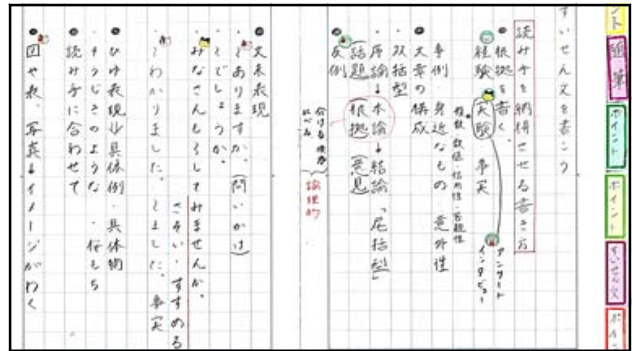 すいせん文を書こう
読み手を納得させる書き方
根拠を書く。
経験 実験 事実
アンケート
インタビュー
事例 身近なもの 意外性
文章の構成
双括型
序論→本論→結論「尾括型」
話題 根拠 意見
反例
論理的
文末表現
～ありますか。(問いかけ)
～でしょうか。
みなさんも～してみませんか。
さそい・すすめる
～わかりました。～ました。事実
ひゆ表現 具体例・具体物
読み手に合わせて
図や表、写真→イメージがわく
随筆
ポイント
ポイント
すいせん文